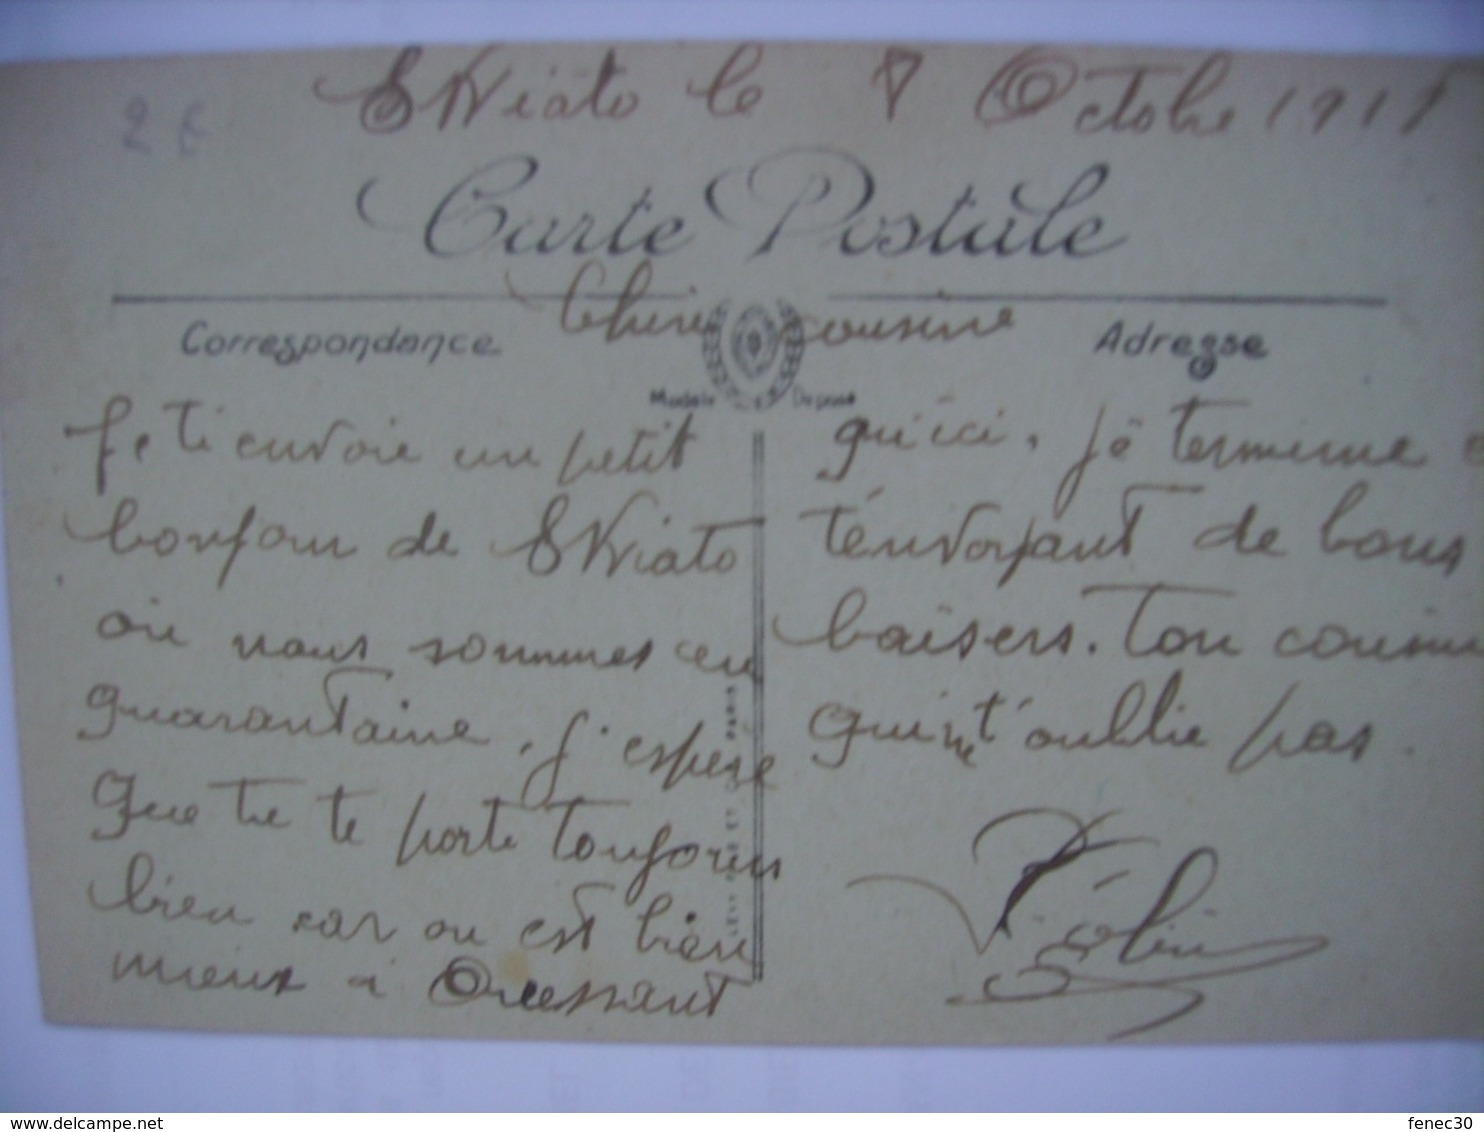 SKiato le 8 Octobre 1918
2 €
Carte Postale
Chère cousine
Correspondance
Adresse
Modèle Déposé
Je ti envoie un petit
bonjour de SKiato
où nous sommes en
quarantaine, j'espère
que tu te porte toujours
bien car on est bien
mieux à Ouessant
qu'ici, je termine
t'envoyant de bons
baisers. Ton cousin
qui ne t'oublie pas.
www.delcampe.net
fenec30